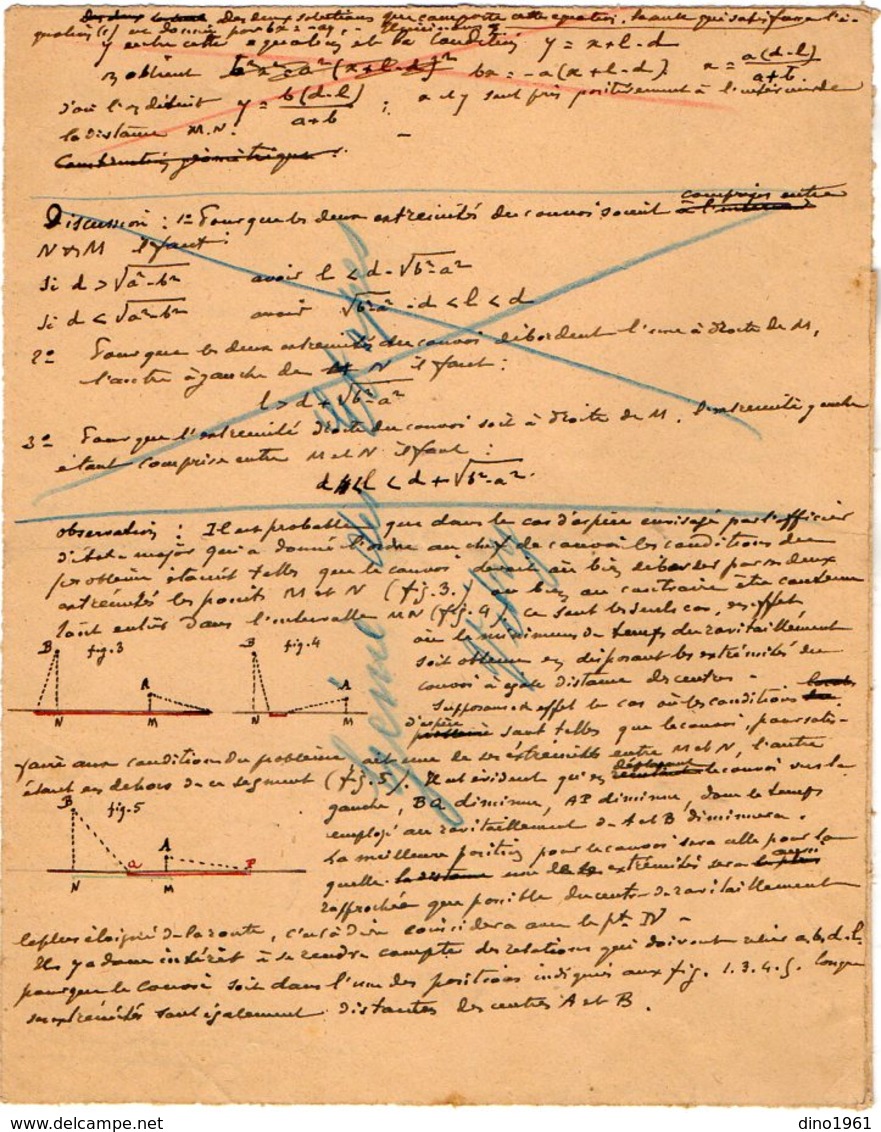 Des deux solutions que comporte cette équation, la seule qui satisfasse l'é-
quation (1) est donnée par bx = -ay.
y entre cette équation et la condition y = x + l - d
on obtient b²x² = a²(x+l-d)² bx = -a(x+l-d). x = a(d-l)/a+b
d'où l'on déduit y = b(d-l)/a+b ; x et y sont pris positivement à l'intérieur de
la distance M.N.
Construction géométrique :
Discussion : 1º Pour que les deux extrémités du convoi soient compris entre
N et M il faut :
Si d > √a²-b² avoir l < d - √b²-a²
Si d < √a²-b² avoir √b²-a² - d < l < d
2º Pour que les deux extrémités du convoi débordent l'une à droite de M,
l'autre à gauche de N il faut :
l > d + √b²-a²
3º Pour que l'extrémité droite du convoi soit à droite de M, l'extrémité gauche
étant comprise entre M et N il faut :
d < l < d + √b²-a².
Observation : Il est probable que dans le cas d'espèce envisagé par l'officier
d'état-major qui a donné l'ordre au chef de convoi les conditions du
problème étaient telles que le convoi devait ou bien déborder par ses deux
extrémités les points M et N (fig. 3.) ou bien au contraire être contenu
tout entier dans l'intervalle MN (fig. 4). Ce sont les seuls cas, en effet
où le minimum de temps du ravitaillement
soit obtenu en disposant les extrémités du
convoi à égale distance des centres.
B fig. 3 A N M
B fig. 4 A N M
Supposons en effet le cas où les conditions
d'espèce sont telles que le convoi pour satis-
faire aux conditions du problème, ait une de ses extrémités entre M et N, l'autre
étant en dehors de ce segment (fig. 5). Il est évident qu'en déplaçant le convoi vers la
gauche, BQ diminue, AP diminue, donc le temps
employé au ravitaillement de A et B diminuera.
B fig. 5 A Q P N M
La meilleure position pour le convoi sera celle pour la
quelle une de ses extrémités sera aussi
rapprochée que possible du centre de ravitaillement
le plus éloigné de la route, c'est à dire coïncidera avec le pt. N
Il y a donc intérêt à se rendre compte des relations qui doivent relier a, b, d, l.
pour que le convoi soit dans l'une des positions indiquées aux fig. 1. 3. 4. 5. lorsque
ses extrémités sont également distantes des centres A et B.
dino1961